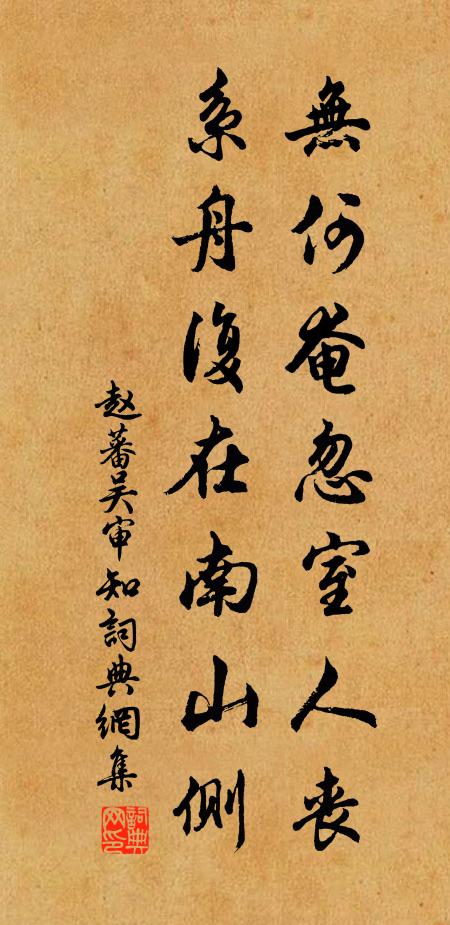 無何奄忽室人喪
系舟復在南山側
赵蕃吴审知詞典網集
詞典網印